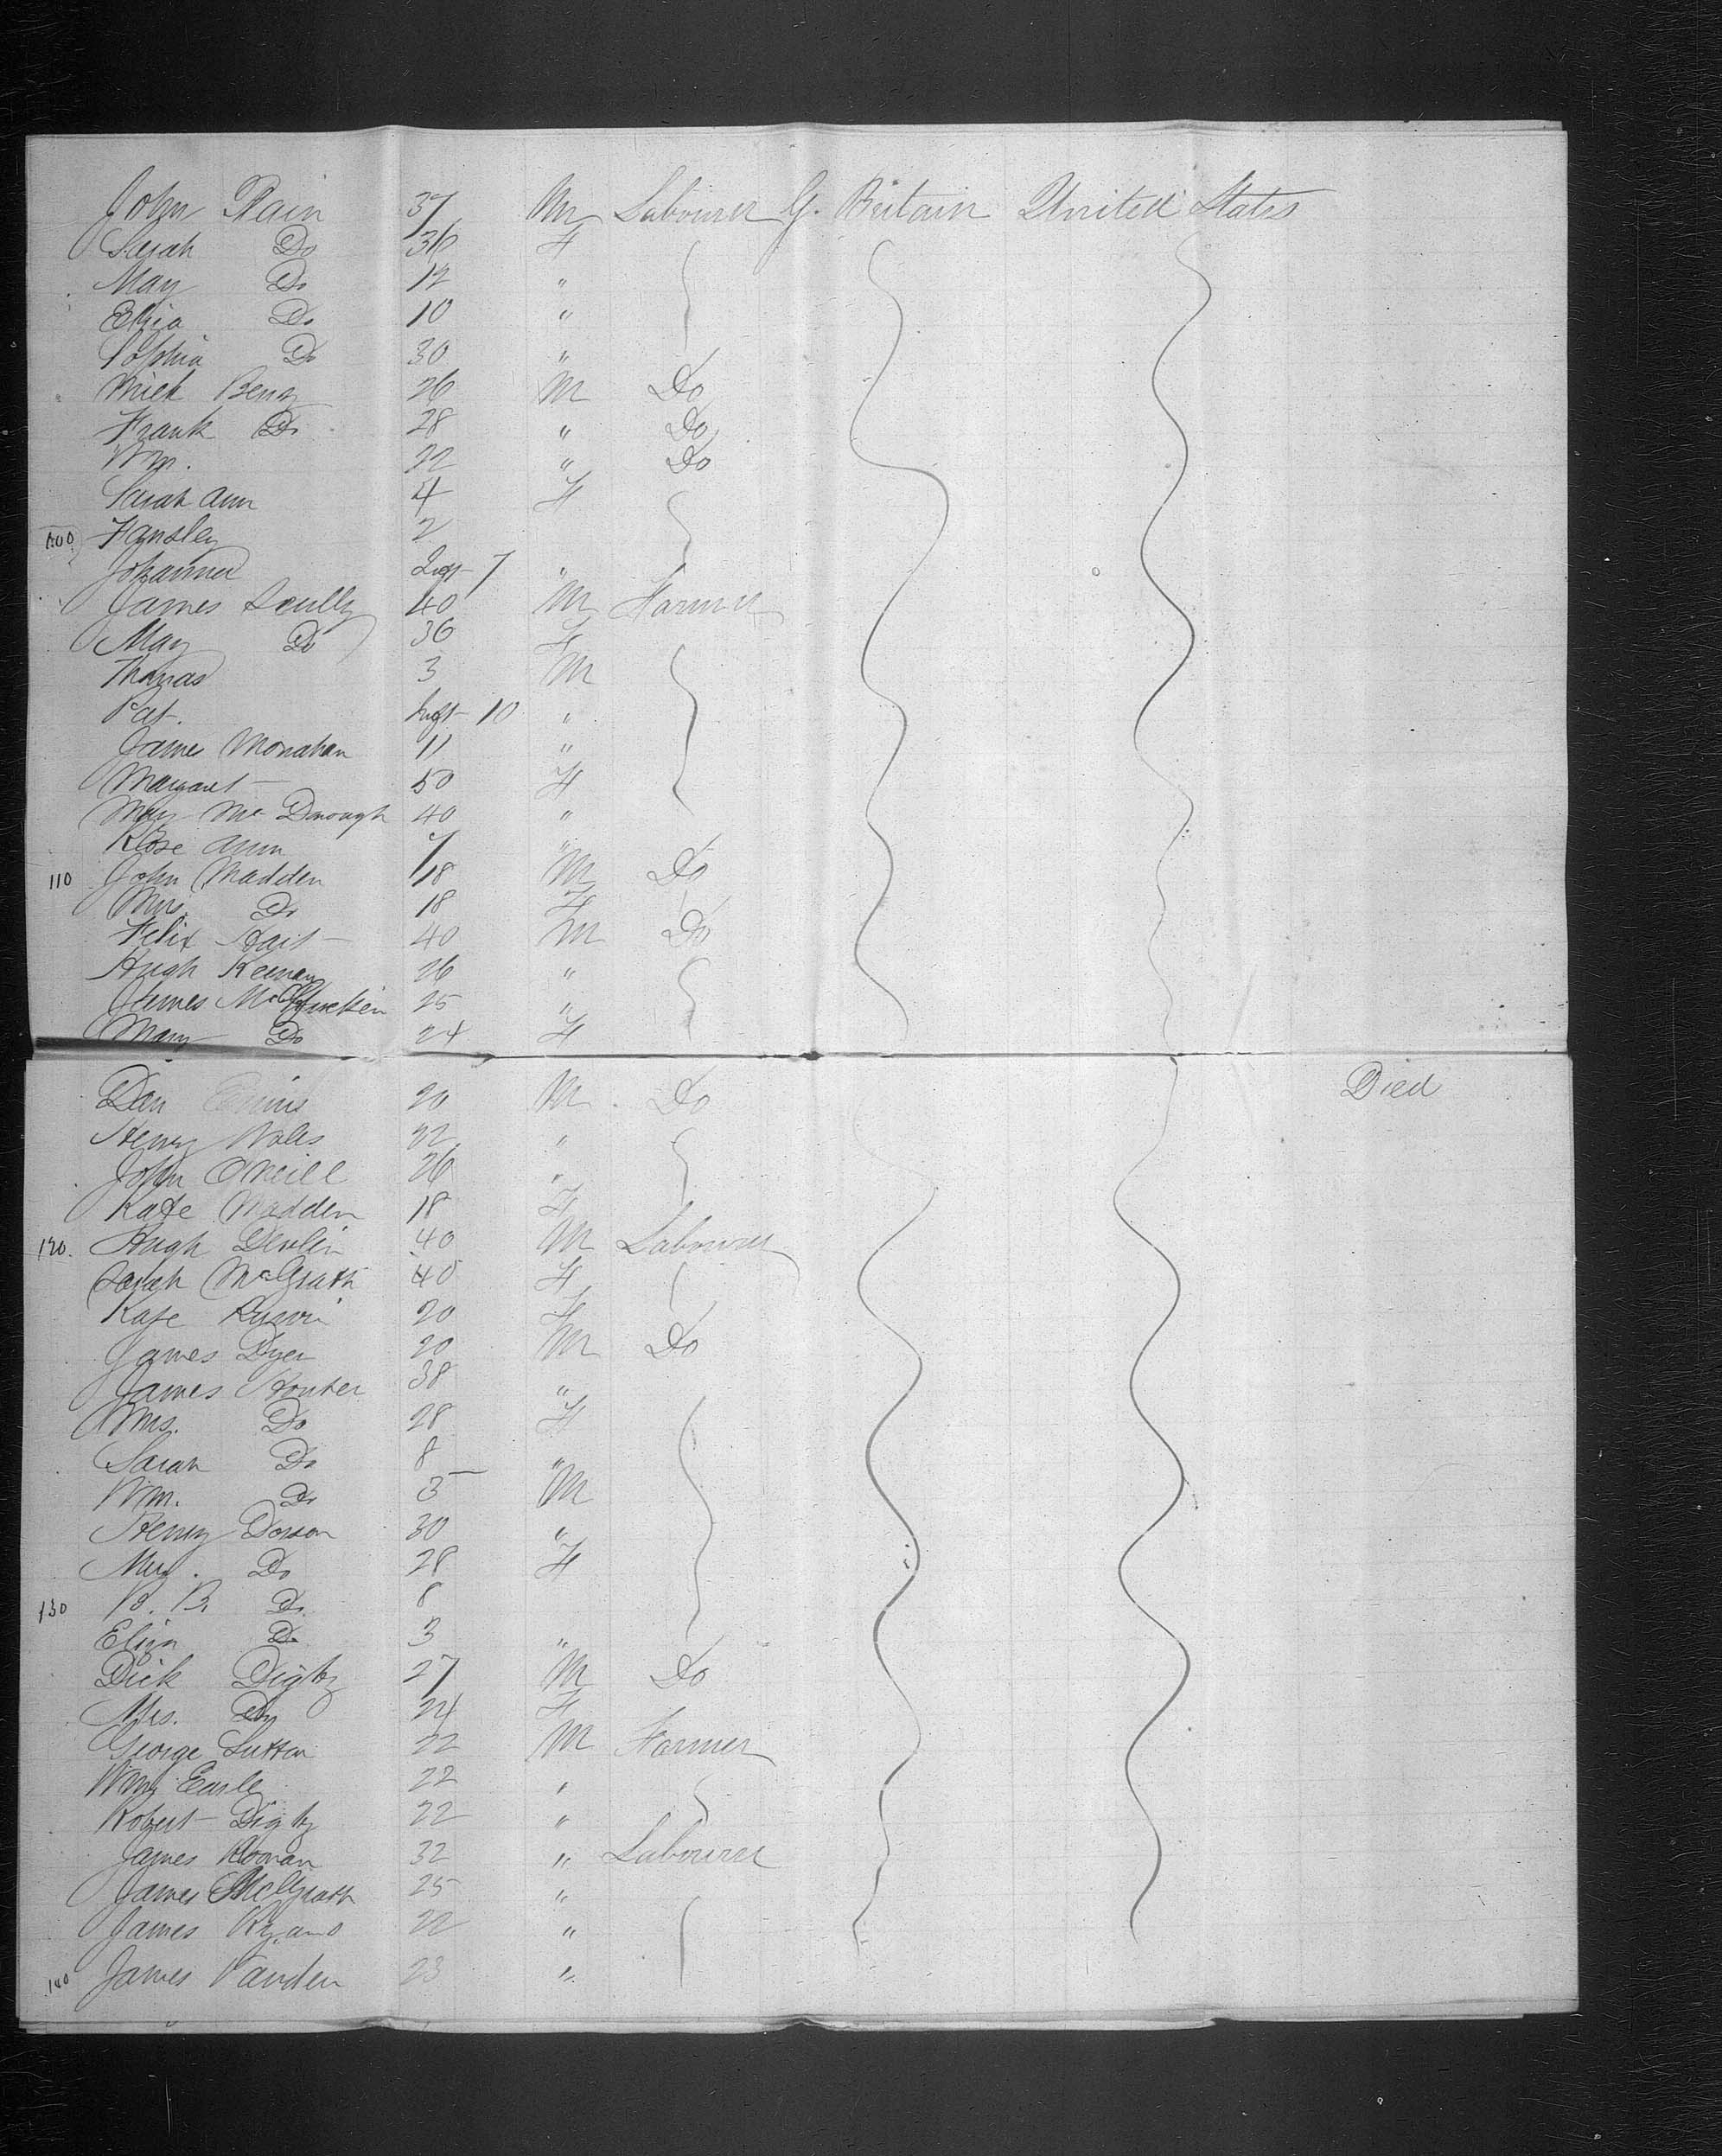 John Rain 37 M Labourer G. Britain United States
Sarah Do 36 F
May Do 12 "
Eliza Do 10 "
Sophia Do 30 "
Mick Benz 26 M Do
Frank Do 28 " Do
Wm. 22 " Do
Sarah Ann 4 F
100 Fansley 2
Johanna Inft 7 "
James Scully 40 M Farmer
May Do 36 F
Thomas 3 M
Pat. Inft 10 "
James Monahan 11 "
Margaret 50 F
May McDonough 40 "
Rose Ann 7 "
110 John Madden 18 M Do
Mrs. Do 18 F
Felix 40 M Do
Hugh Keenan 26 "
James 25 "
Mary Do 24 F
Dan 20 M Do Died
Henry Wales 22 "
John O'Neill 26 "
Kate Madden 18 F
120. Hugh Devlin 40 M Labourer
Sarah McGrath 40 F
Kate 20 F
James Dyer 20 M Do
James Hunter 38 "
Mrs. Do 28 F
Sarah Do 8 "
Wm. Do 5 M
Henry 30 "
Do 28 F
130 Do 8
Eliza Do 3 "
Dick Digby 27 M Do
Mrs. Do 24 F
George Sutton 22 M Farmer
Wm. Earle 22 "
Robert Digby 22 "
James Roonan 32 " Labourer
James McGrath 25 "
James Ryans 22 "
140 James 23 "